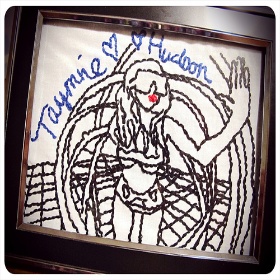 Taymine ♡ ♡ Hudson